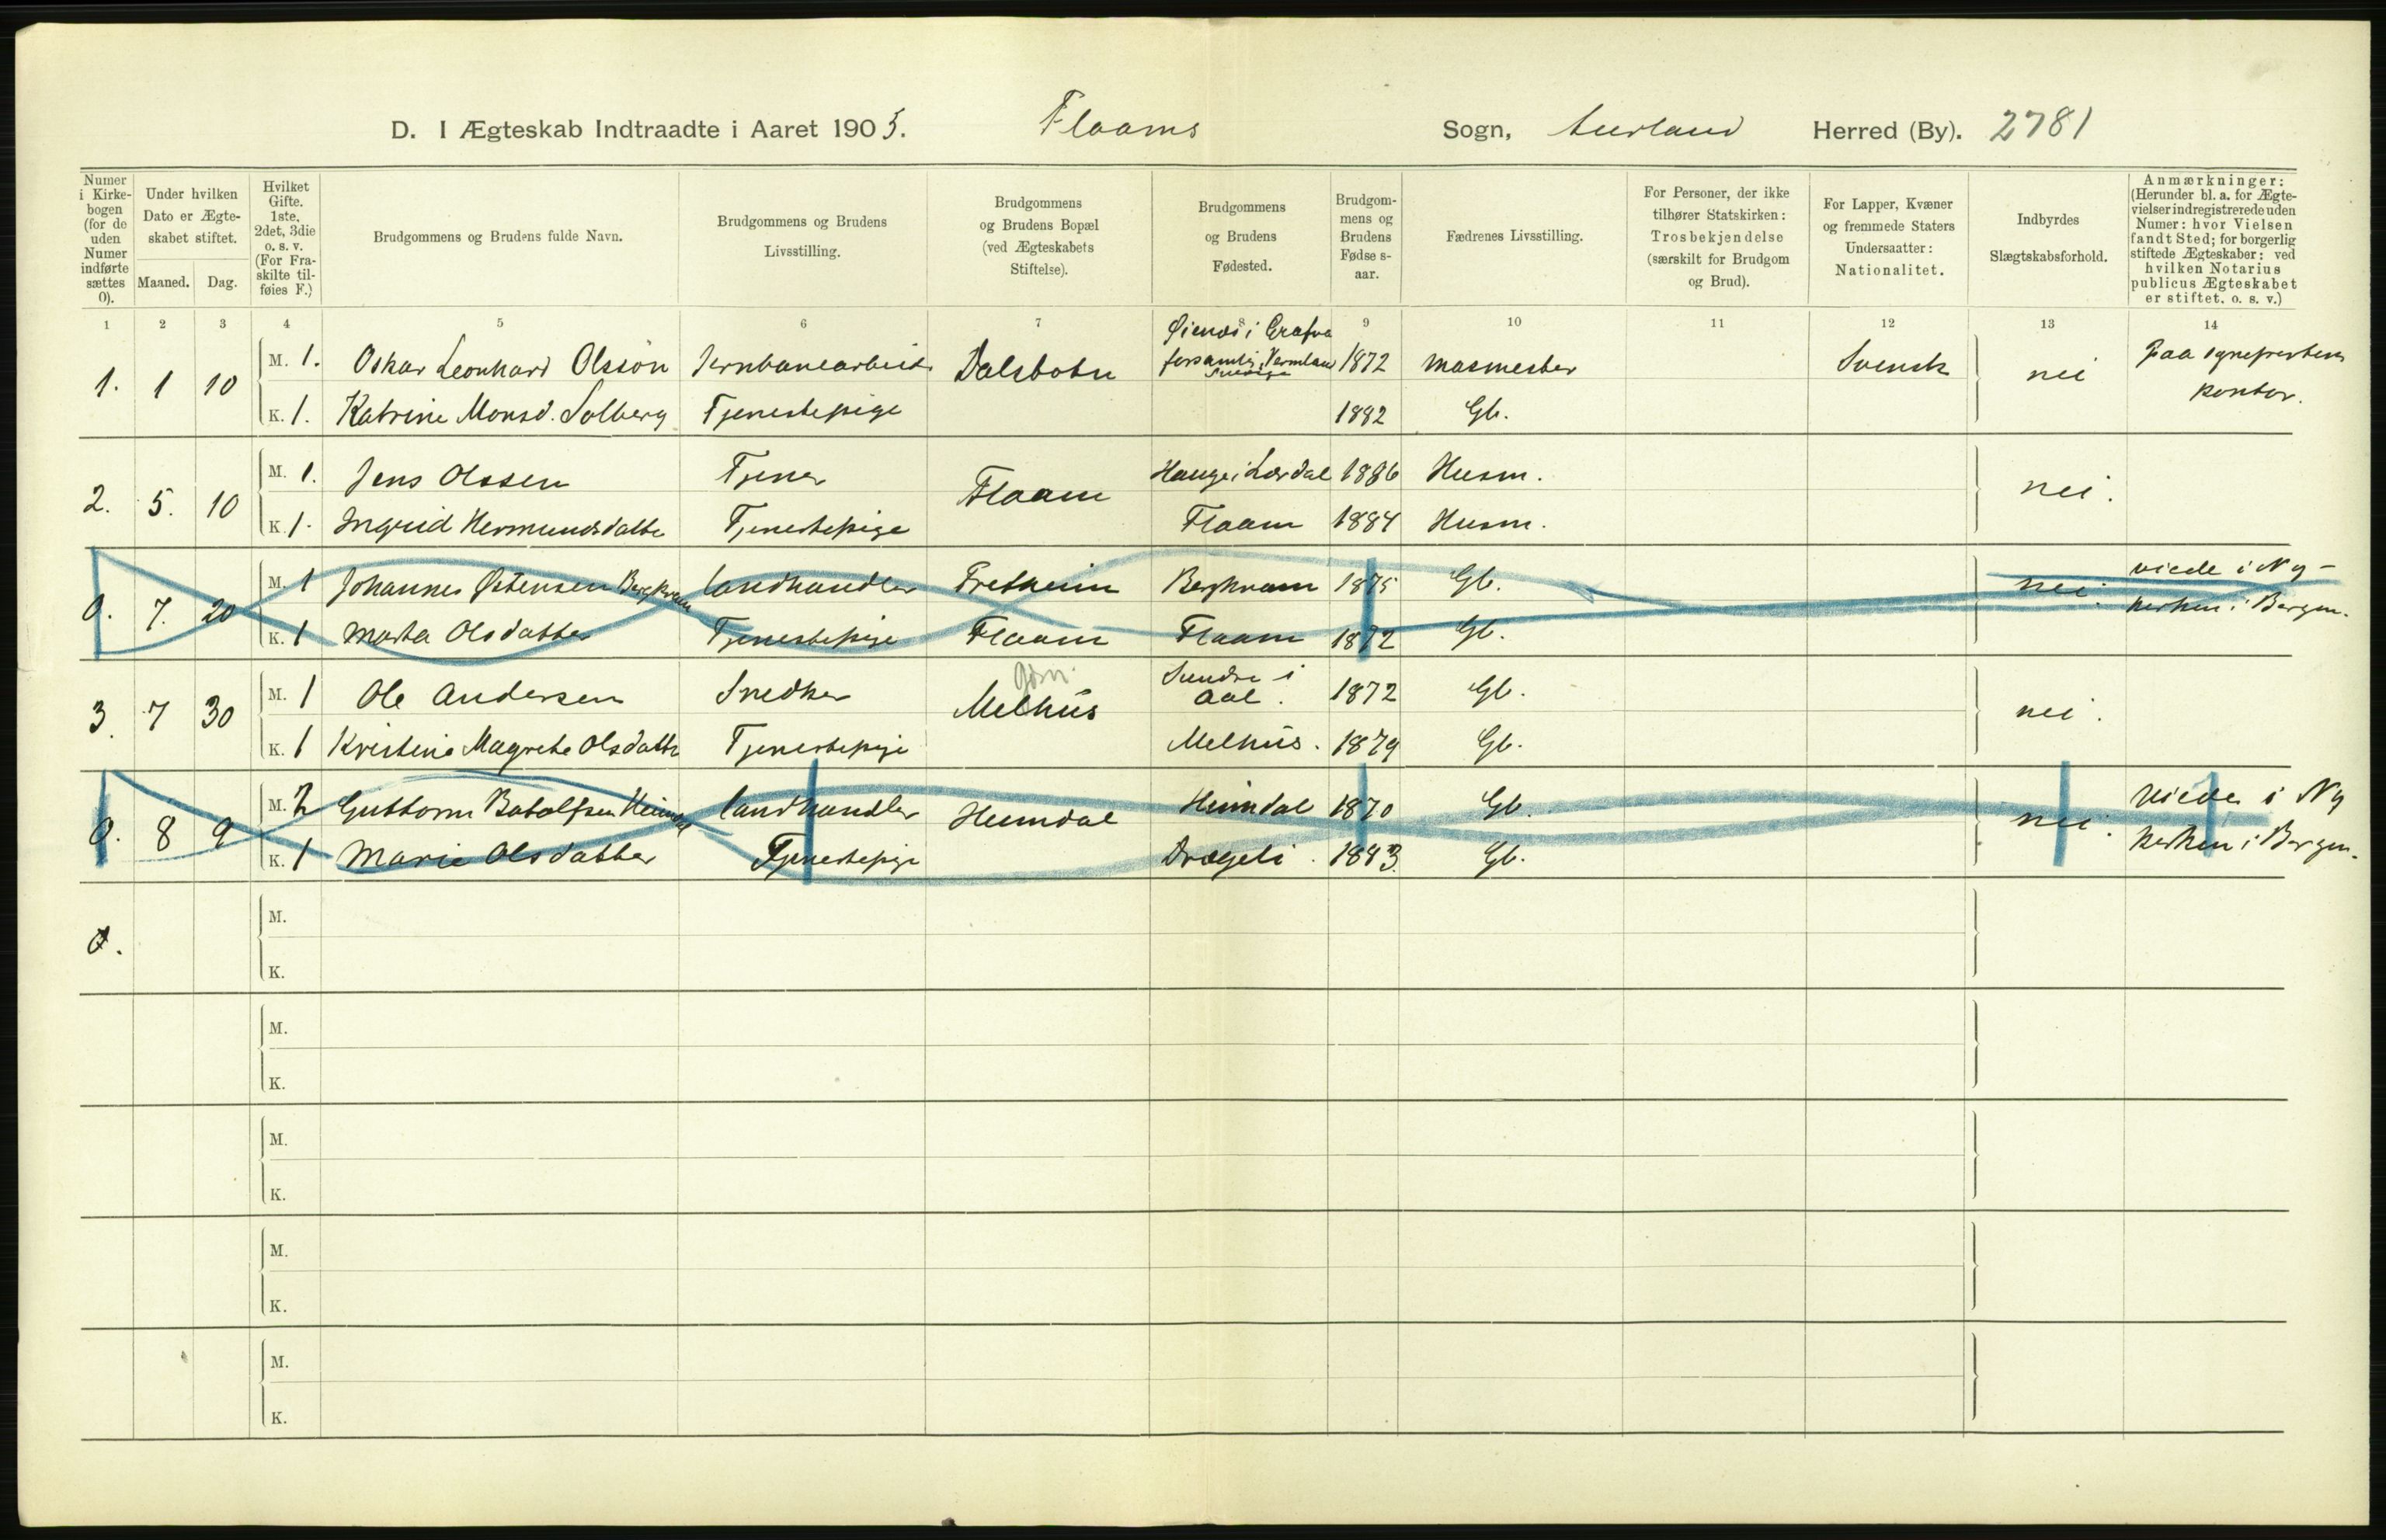 D. I Ægteskab Indtraadte i Aaret 1905. Flaams Sogn, Aurland Herred (By). 2781
Numer i Kirkebogen (for de uden Numer indførte sættes 0).
Under hvilken Dato er Ægteskabet stiftet.
Maaned. Dag.
Hvilket Gifte. 1ste, 2det, 3die o. s. v. (For Fraskilte tilføies F.)
Brudgommens og Brudens fulde Navn.
Brudgommens og Brudens Livsstilling.
Brudgommens og Brudens Bopæl (ved Ægteskabets Stiftelse).
Brudgommens og Brudens Fødested.
Brudgommens og Brudens Fødsesaar.
Fædrenes Livsstilling.
For Personer, der ikke tilhører Statskirken: Trosbekjendelse (særskilt for Brudgom og Brud).
For Lapper, Kvæner og fremmede Staters Undersaatter: Nationalitet.
Indbyrdes Slægtskabsforhold.
Anmærkninger: (Herunder bl. a. for Ægtevielser indregistrerede uden Numer: hvor Vielsen fandt Sted; for borgerlig stiftede Ægteskaber: ved hvilken Notarius publicus Ægteskabet er stiftet. o. s. v.)
1 2 3 4 5 6 7 8 9 10 11 12 13 14
1. 1 10 M. 1. Oskar Leonhard Olsson Jernbanearbeid. Dalsbotn 1872 Masmester Svensk nei Paa sogneprestens kontor.
K. 1. Katrine Monsd. Solberg Tjenestepige 1882 Gb.
2. 5. 10 M. 1. Jens Olssen Tjener Flaam Hauge i Lærdal 1886 Husm. nei.
K. 1. Ingrid Hermundsdatter Tjenestepige Flaam 1884 Husm.
0. 7. 20 M. 1 Johannes Østensen Bergkvam Landhandler Fretheim Berkvam 1875 Gb. nei. viede i Ny-
K. 1 Marta Olsdatter Tjenestepige Flaam Flaam 1872 Gb. kirken i Bergen.
3. 7 30 M. 1 Ole Andersen Snedker Melhus Sundre i Aal. 1872 Gb. nei.
K. 1 Kristine Magrete Olsdatter Tjenestepige Melhus. 1879 Gb.
0. 8 9 M. 2 Guttorm Botolfsen Heimdal Landhandler Heimdal Heimdal 1870 Gb. nei. Viede i Ny
K. 1 Marie Olsdatter Tjenestepige 1883. Gb. kirken i Bergen.
0. M.
K.
M.
K.
M.
K.
M.
K.
M.
K.